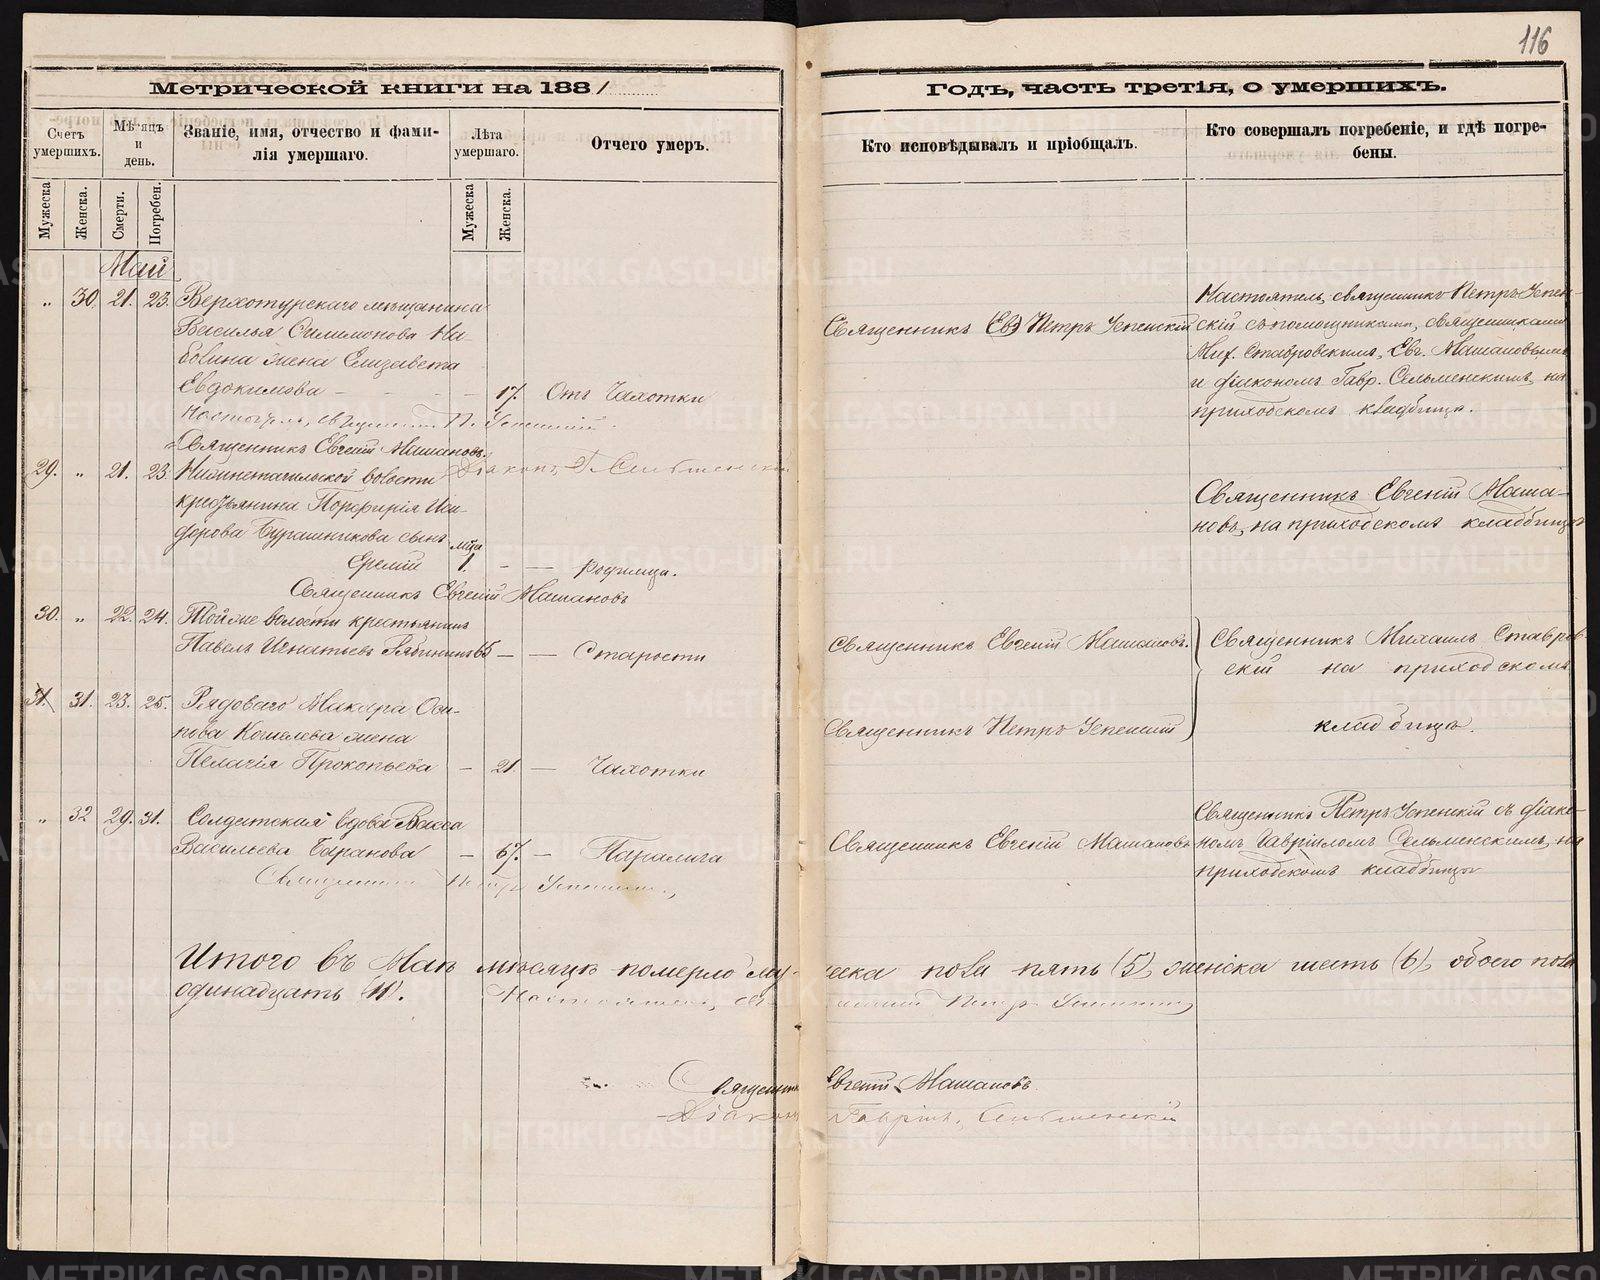 116
Метрической книги на 1881
Годъ, часть третія, о умершихъ.
Счетъ умершихъ.
Мѣсяцъ и день.
Званіе, имя, отчество и фами-
лія умершаго.
Лѣта умершаго.
Отчего умеръ.
Кто исповѣдывалъ и пріобщалъ.
Кто совершалъ погребеніе, и гдѣ погре-
бены.
Мужеска
Женска.
Смерти.
Погребен.
Мужеска
Женска.
Май
„ 30. 21. 23. Верхотурскаго мѣщанина
Василья
бовина жена Елизавета
Евдокимова — 17. Отъ Чахотки
Священникъ Петръ Успенскій
Настоятель, священникъ Петръ Успен-
скій съ помощниками, священниками
Мих. Ставровскимъ, Евг. Машановымъ
и діакономъ Гавр. Сельменскимъ, на
приходскомъ кладбищѣ.
Настоятель, священникъ П. Успенскій.
Священникъ Евгеній Машановъ.
Діаконъ Г. Сельменскій
29. „ 21. 23. Нижнетагильской волости
крестьянина Порфирія Иси-
дорова Бурашникова сынъ
Еремій мца 1. — — родимца.
Священникъ Евгеній Маша-
новъ, на приходскомъ кладбищѣ
Священникъ Евгеній Машановъ
30. „ 22. 24. Той же волости крестьянинъ
Павелъ Игнатьевъ Рябининъ 65 — — Старости
Священникъ Евгеній Машановъ.
Священникъ Михаилъ Ставров-
скій на приходскомъ
кладбищѣ.
31. 31. 23. 25. Рядоваго Макара Оси-
пова Кошелева жена
Пелагія Прокопьева — 21. — Чахотки
Священникъ Петръ Успенскій
„ 32 29. 31. Солдатская вдова Васса
Васильева Баранова — 67. — Паралича
Священникъ Евгеній Машановъ
Священникъ Петръ Успенскій съ діако-
номъ Гавріиломъ Сельменскимъ, на
приходскомъ кладбищѣ
Священникъ Петръ Успенскій
Итого въ Маѣ мѣсяцѣ померло му-
жеска пола пять (5), женска шесть (6), обоего пола
одинадцать (11).
Настоятель, священникъ Петръ Успенскій
Священникъ Евгеній Машановъ
Діаконъ Гавріилъ Сельменскій
METRIKI.GASO-URAL.RU